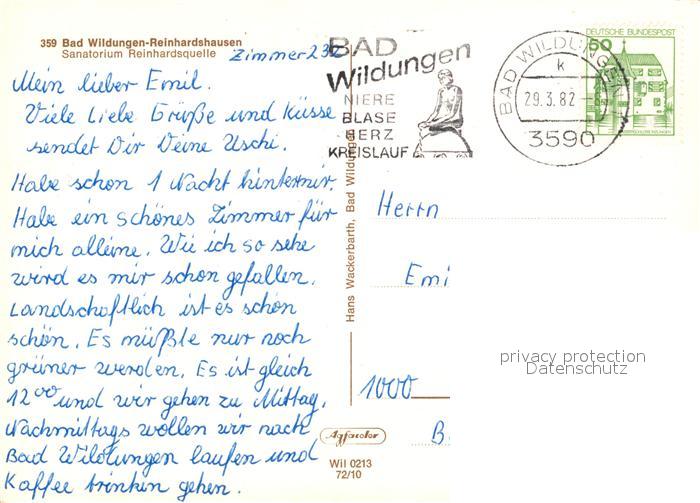 359 Bad Wildungen-Reinhardshausen
Sanatorium Reinhardsquelle
Zimmer 232
Mein lieber Emil.
Viele Liebe Grüße und Küsse
sendet Dir Deine Uschi.
Habe schon 1 Nacht hintermir.
Habe ein schönes Zimmer für
mich alleine. Wie ich so sehe
wird es mir schon gefallen.
Landschaftlich ist es schon
schön. Es müßte nur noch
grüner werden. Es ist gleich
12⁰⁰ und wir gehen zu Mittag.
Nachmittags wollen wir nach
Bad Wildungen laufen und
Kaffee trinken gehen.
BAD
Wildungen
NIERE
BLASE
HERZ
KREISLAUF
BAD WILDUNGEN
k
29.3.82
3590
DEUTSCHE BUNDESPOST
50
Hans Wackerbarth, Bad Wildungen
Herrn
Emi
1000
B
Agfacolor
Wil 0213
72/10
privacy protection
Datenschutz